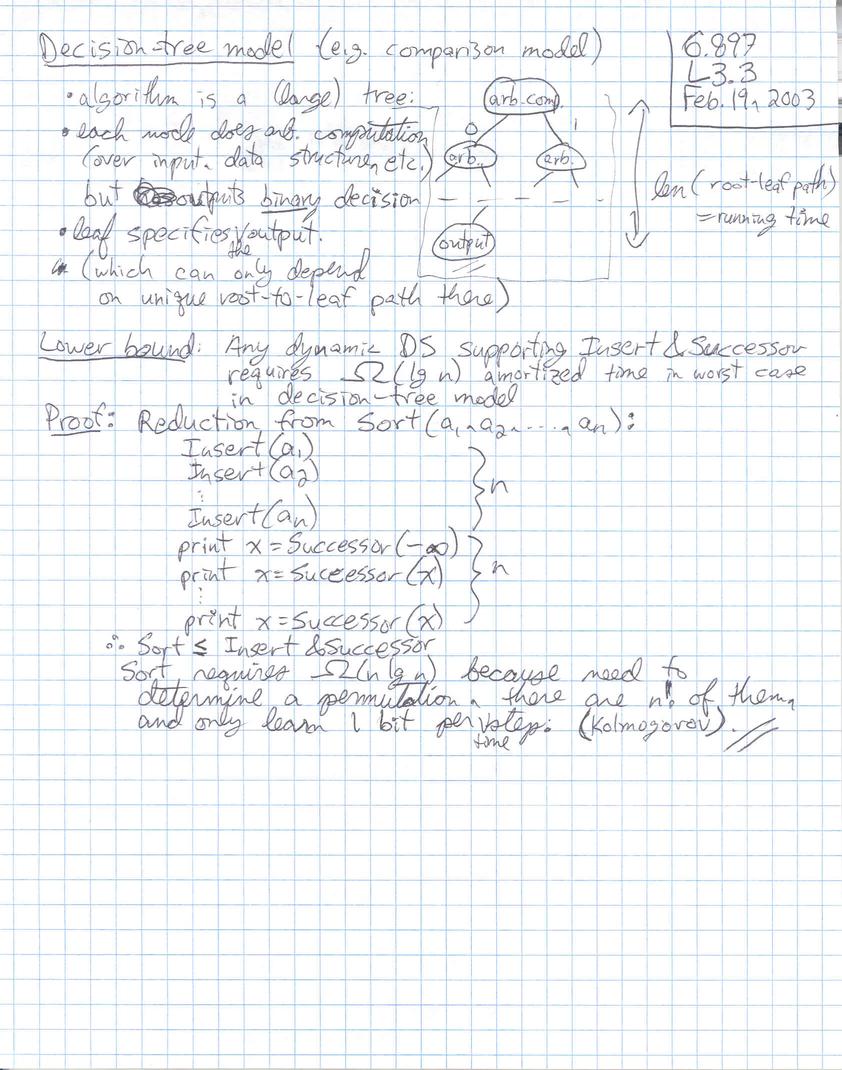 Decision-tree model (e.g. comparison model)
6.897
L3.3
Feb. 19, 2003
• algorithm is a (large) tree:
• each node does arb. computation
(over input, data structure, etc.)
but outputs binary decision
• leaf specifies the output.
(which can only depend
on unique root-to-leaf path there)
arb. comp.
0 1
arb. arb.
output
len(root-leaf path)
= running time
Lower bound: Any dynamic DS supporting Insert & Successor
requires Ω(lg n) amortized time in worst case
in decision-tree model
Proof: Reduction from Sort(a₁, a₂, ..., aₙ):
Insert(a₁)
Insert(a₂)
⋮
Insert(aₙ)
} n
print x = Successor(-∞)
print x = Successor(x)
⋮
print x = Successor(x)
} n
∴ Sort ≤ Insert & Successor
Sort requires Ω(n lg n) because need to
determine a permutation, there are n! of them,
and only learn 1 bit per time step. (Kolmogorov).